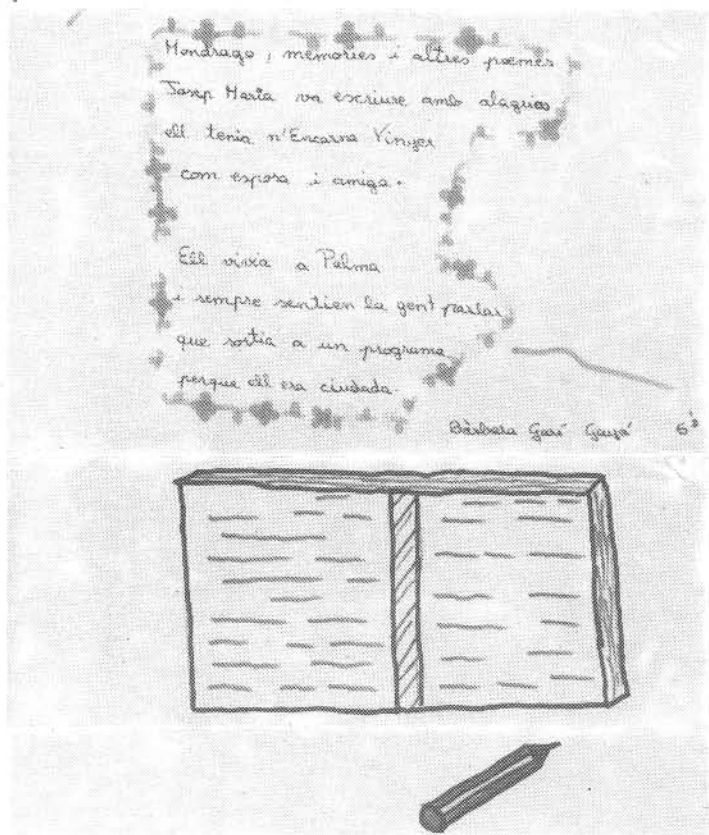 Mondrago, memories i altres poemes
Josep Maria va escriure amb alegries
ell tenia n'Encarna Vinyes
com esposa i amiga.
Ell vivia a Palma
i sempre sentien la gent parlar
que sortia a un programa
perque ell era ciudada.
Bàrbara Garí 6è